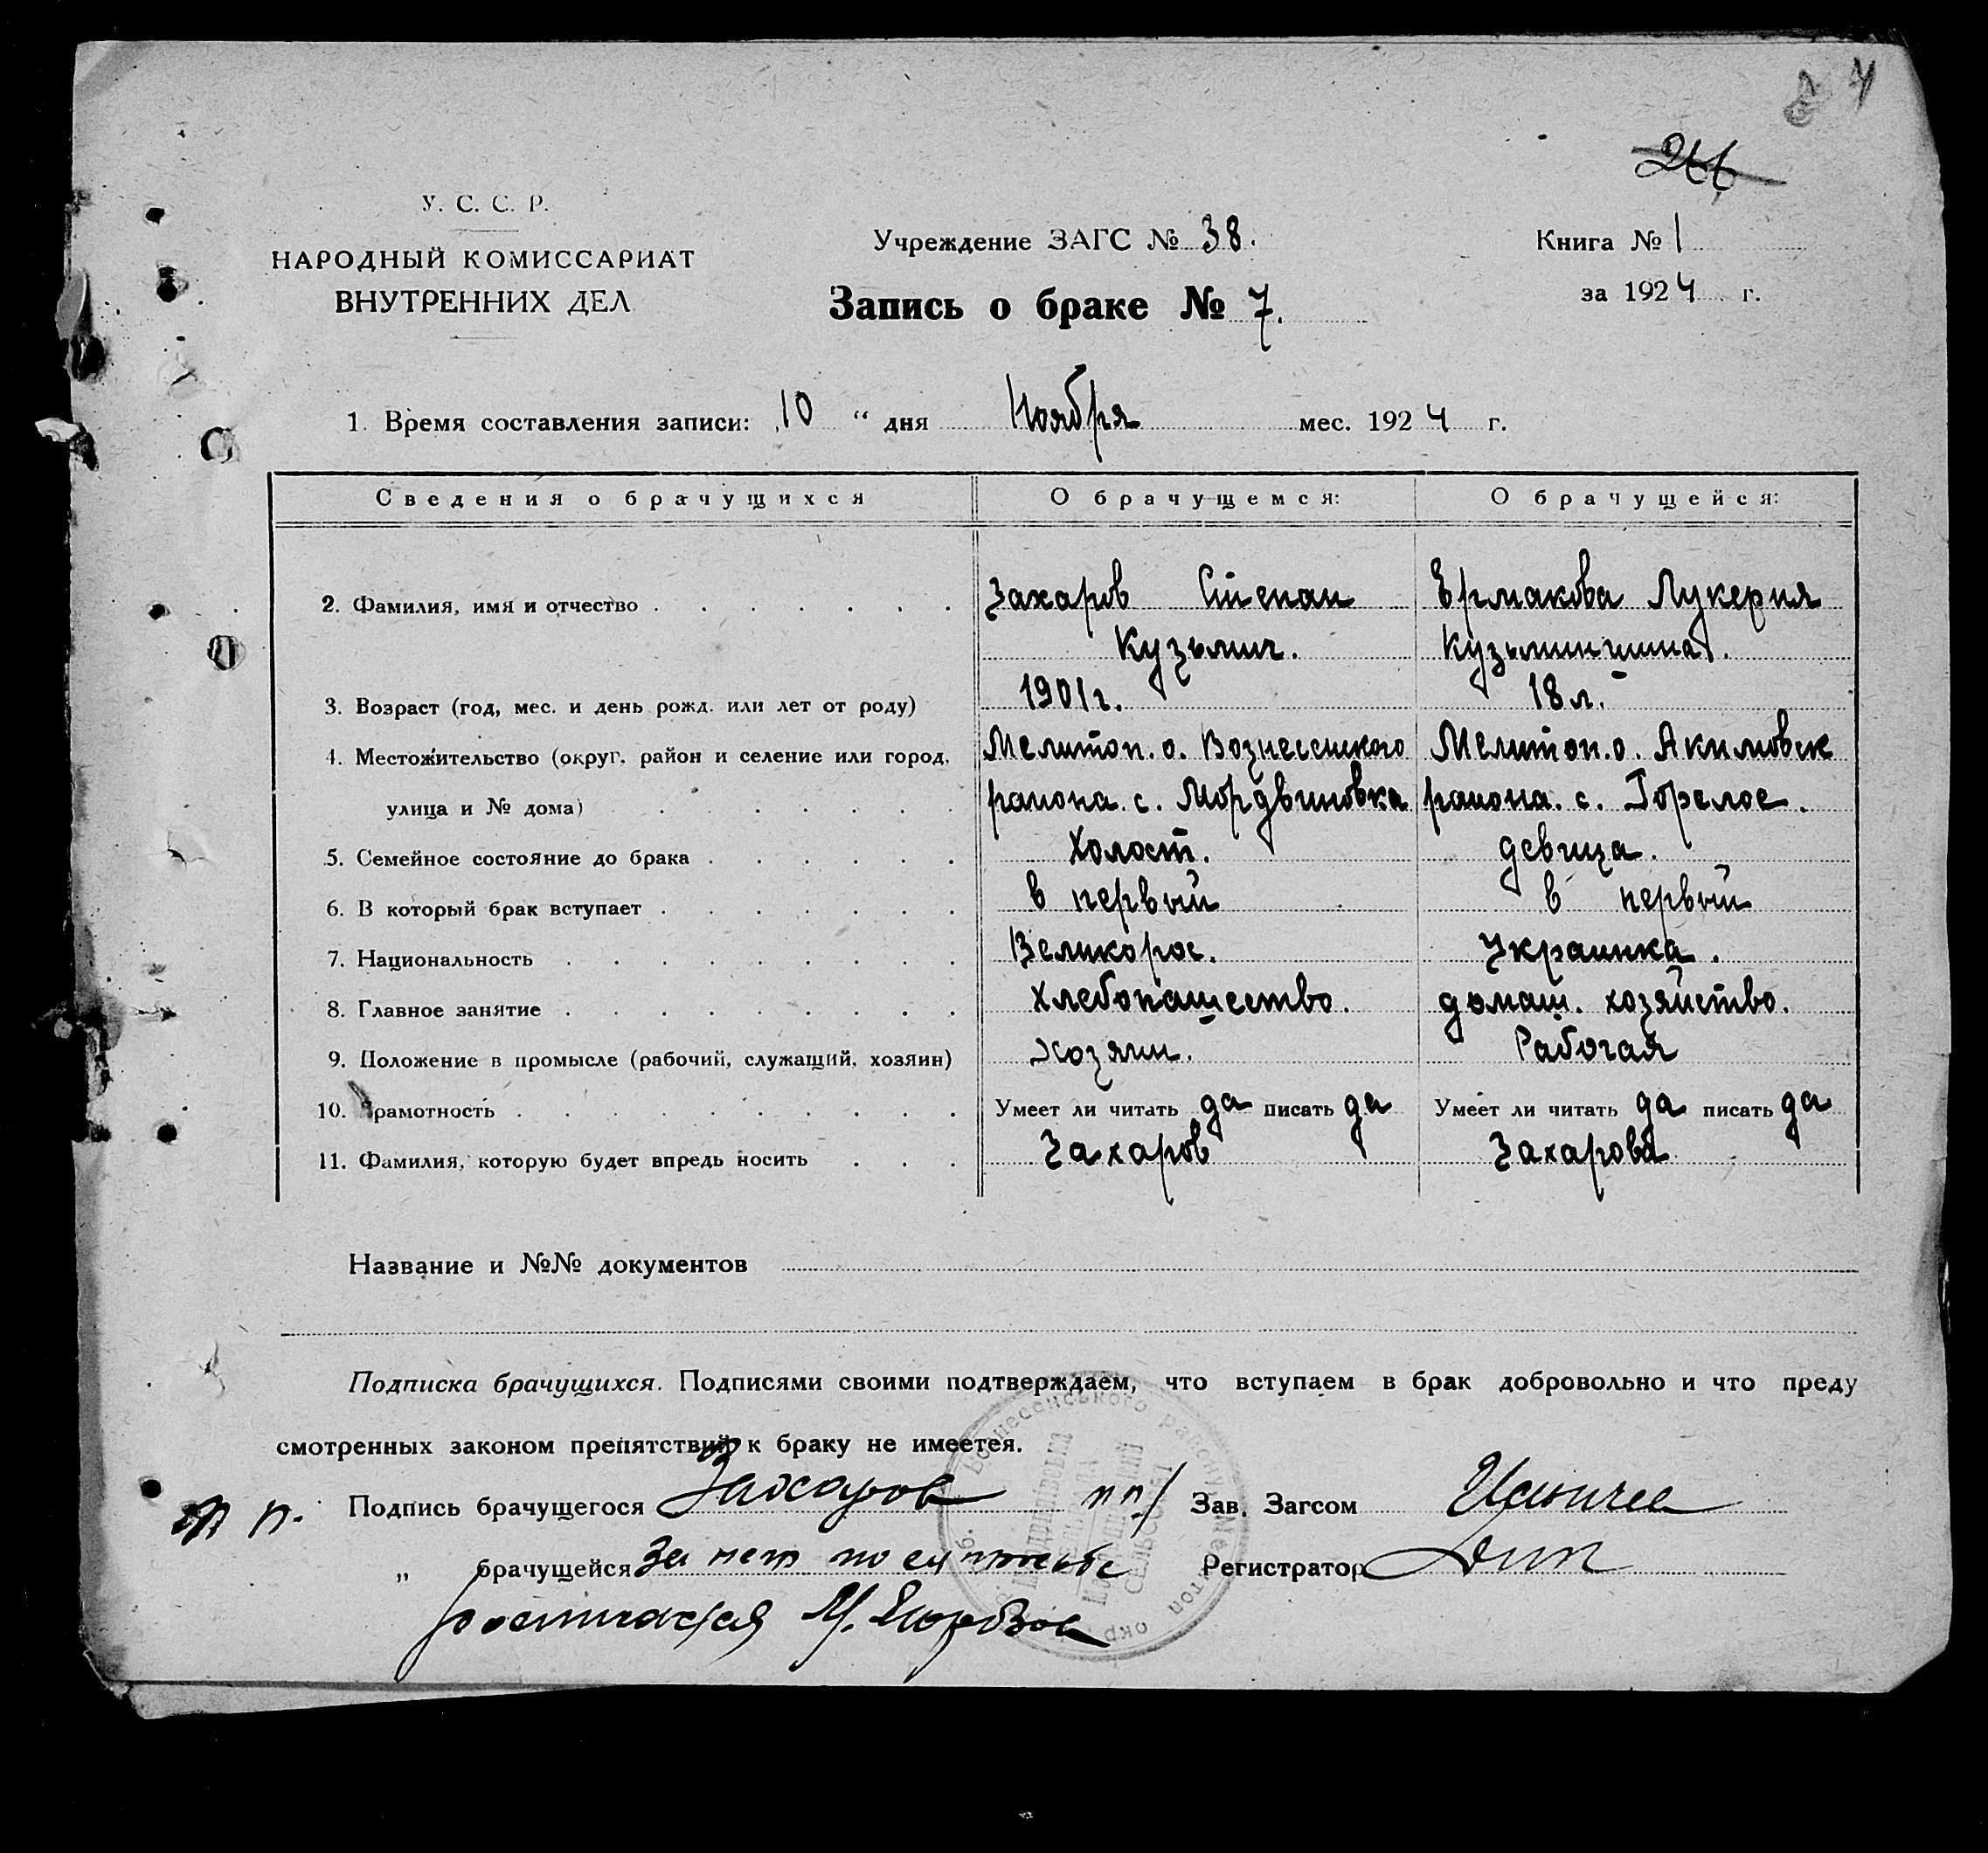 7
266
У. С. С. Р.
НАРОДНЫЙ КОМИССАРИАТ
ВНУТРЕННИХ ДЕЛ
Учреждение ЗАГС № 38.
Запись о браке № 7.
Книга № 1
за 1924 г.
1. Время составления записи: 10 “ дня Ноября мес. 1924 г.
Сведения о брачущихся О брачущемся: О брачущейся:
2. Фамилия, имя и отчество Захаров Степан Ермакова Лукерия
Кузьмич.
3. Возраст (год, мес. и день рожд. или лет от роду) 1901 г. 18 л.
4. Местожительство (округ, район и селение или город, Мелитоп. о. Вознесенского Мелитоп. о. Акимовск
улица и № дома) района с. Мордвиновка района. с. Горелое.
5. Семейное состояние до брака Холост. девица.
6. В который брак вступает в первый в первый
7. Национальность Великорос. Украинка.
8. Главное занятие Хлебопашество. домаш. хозяйство.
9. Положение в промысле (рабочий, служащий, хозяин) Хозяин. Рабочая
10. Грамотность Умеет ли читать да писать да Умеет ли читать да писать да
11. Фамилия, которую будет впредь носить Захаров Захарова
Название и №№ документов
Подписка брачущихся. Подписями своими подтверждаем, что вступаем в брак добровольно и что преду
смотренных законом препятствий к браку не имеетея.
п п. Подпись брачущегося Захаров пп/ Зав. Загсом
„ брачущейся За нет по ея просьбе Регистратор